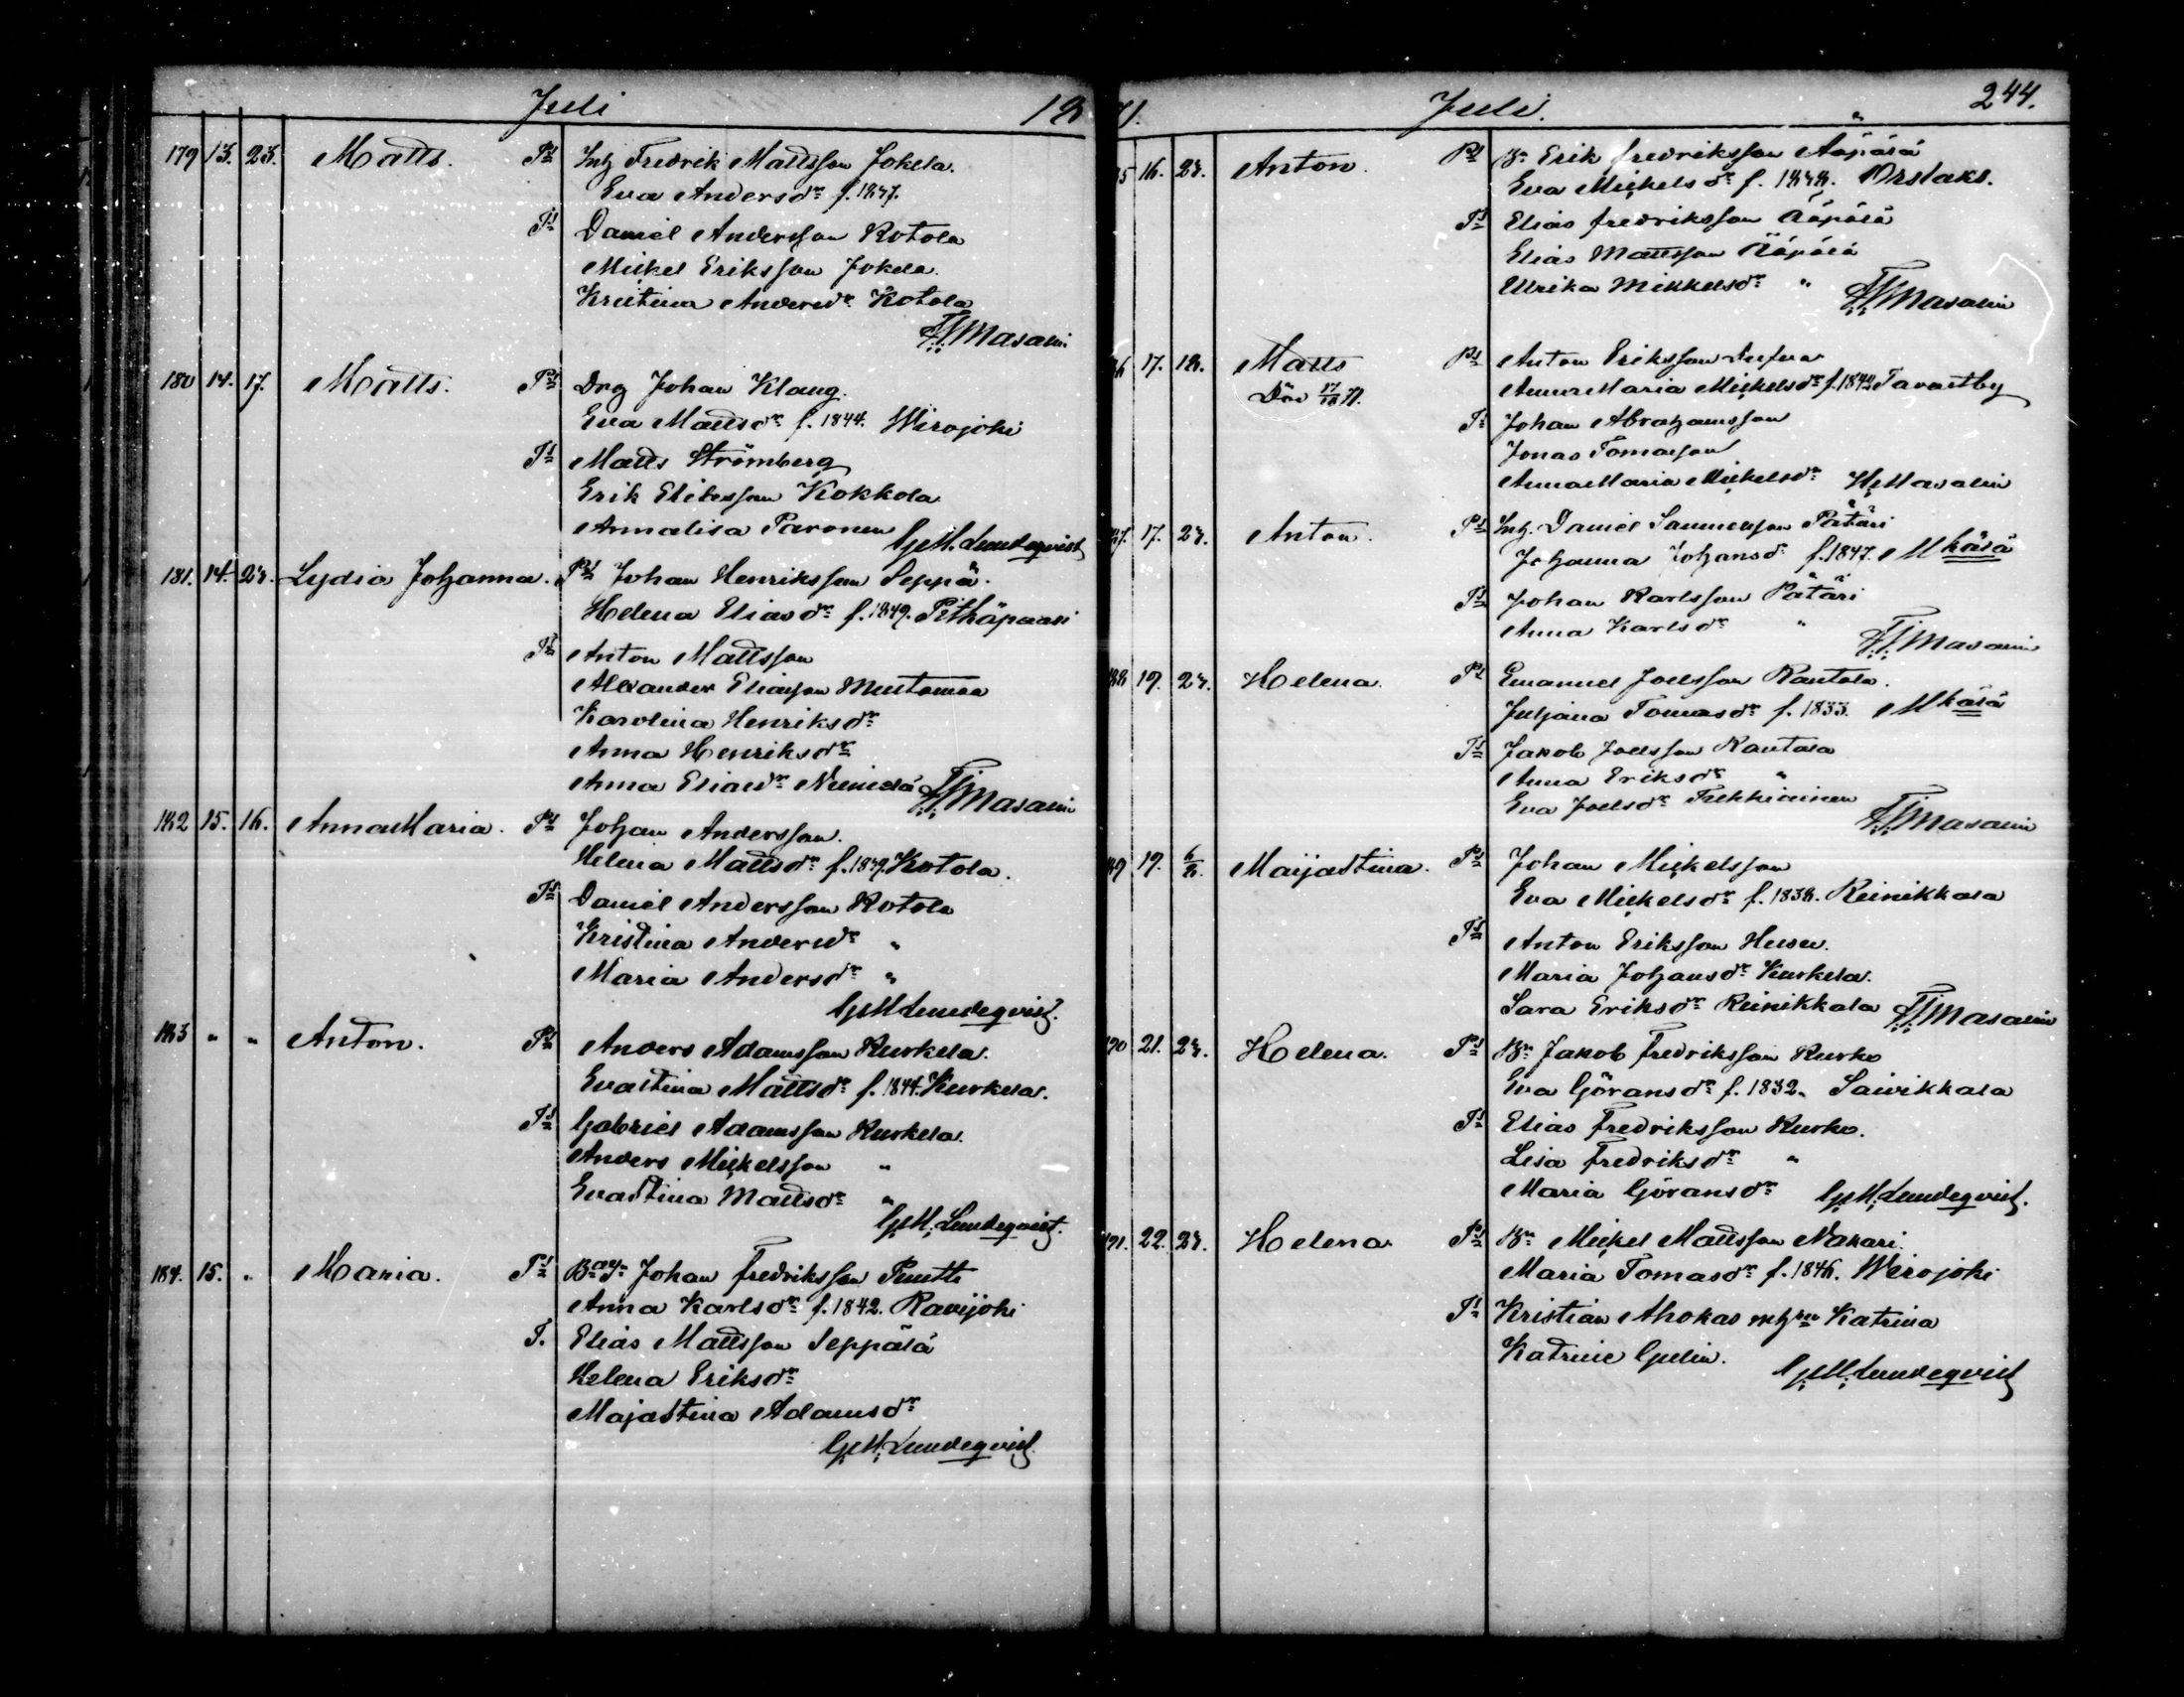 Juli 18
179 13. 23. Matts. Pr Inh Fredrik Mattsson Jokela.
Eva Andersdr f. 1837.
Tr Daniel Andersson Kotola
Mickel Eriksson Jokela.
Kristina Andersdr Kotola
Masalin
180 14. 17. Matts. Pr Drg Johan Klang.
Eva Mattsdr f. 1844. Wirojoki
Tr Matts Strömberg
Erik Eliasson Kokkola
Annalisa Paronen G.M. Lundeqvist
181. 14. 23. Lydia Johanna. Pr Johan Henriksson Seppä.
Helena Eliasdr f. 1849. Pitkäpaasi
Tr Anton Mattsson
Alexander Eliasson Mustamaa
Karolina Henriksdr
Anna Henriksdr
Anna Eliasdr Masalin
182 15. 16. Anna Maria. Pr Johan Andersson.
Helena Mattsdr f. 1839. Kotola.
Tr Daniel Andersson Kotola
Kristina Andersdr "
Maria Andersdr "
G.M. Lundeqvist.
183 " " Anton. Pr Anders Adamsson Kurkela.
Evastina Mattsdr f. 1844. Kurkela.
Tr Gabriel Adamsson Kurkela.
Anders Mickelsson "
Evastina Mattsdr "
G.M. Lundeqvist.
184. 15. " Maria. Pr Johan Fredriksson
Anna Karlsdr f. 1842. Ravijoki
T. Elias Mattsson Seppälä
Helena Eriksdr
Majastina Adamsdr
G.M. Lundeqvist.
71. Juli. 244.
16. 23. Anton. Pr Bn Erik Fredriksson Ääpälä
Eva Mickelsdr f. 1838. Orslaks.
Tr Elias Fredriksson Ääpälä
Elias Mattsson Ääpälä
Ulrika Mikkelsdr " Masalin
17. 18. Matts Pr Anton Eriksson
Död Anna Maria Mickelsdr f. 1842 Tavastby
Tr Johan Abrahamsson
Jonas Tomasson
Anna Maria Mickelsdr Masalin
17. 23. Anton. Pr Inh. Daniel Samuelsson Pätäri
Johanna Johansdr f. 1847. Mkälä
Tr Johan Karlsson Pätäri
Anna Karlsdr " Masalin
19. 23. Helena. Pr Emanuel Joelsson Rantala.
Juljana Tomasdr f. 1833. Mkälä
Tr Jakob Joelsson Rantala
Anna Eriksdr "
Eva Joelsdr Masalin
19. 6/8. Maijastina. Pr Johan Mickelsson
Eva Mickelsdr f. 1838. Reinikkala
Tr Anton Eriksson
Maria Johansdr Kurkela.
Sara Eriksdr Reinikkala Masalin
21. 23. Helena. Pr Bn Jakob Fredriksson Kurko
Eva Göransdr f. 1832. Saivikkala
Tr Elias Fredriksson Kurko.
Lisa Fredriksdr "
Maria Göransdr G.M. Lundeqvist.
22. 23. Helena. Pr Bn Mickel Mattsson Nakari.
Maria Tomasdr f. 1846. Wirojoki
Tr Kristian Ahokas Katrina
Katrine G.M. Lundeqvist